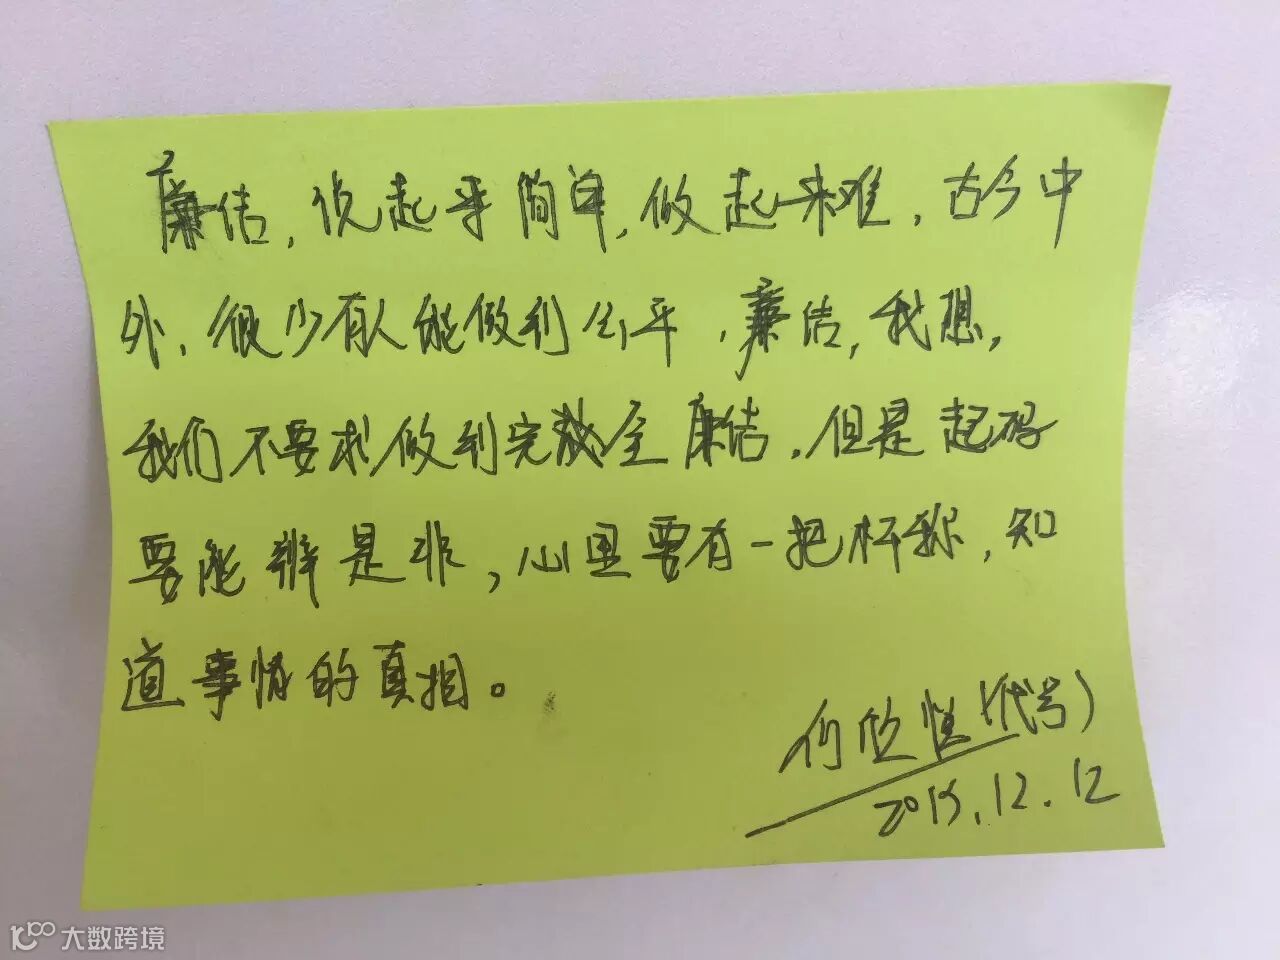 廉洁，说起来简单，做起来难，古今中
外，很少有人能做到公平，廉洁，我想，
我们不要求做到完全廉洁，但是起码
要能辨是非，心里要有一把杆称，知
道事情的真相。
何欣(代号)
2015.12.12
大数跨境